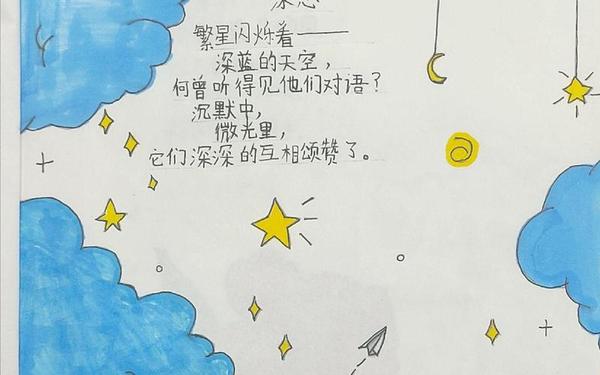 繁星闪烁着——
深蓝的天空，
何曾听得见他们对语？
沉默中，
微光里，
它们深深的互相颂赞了。